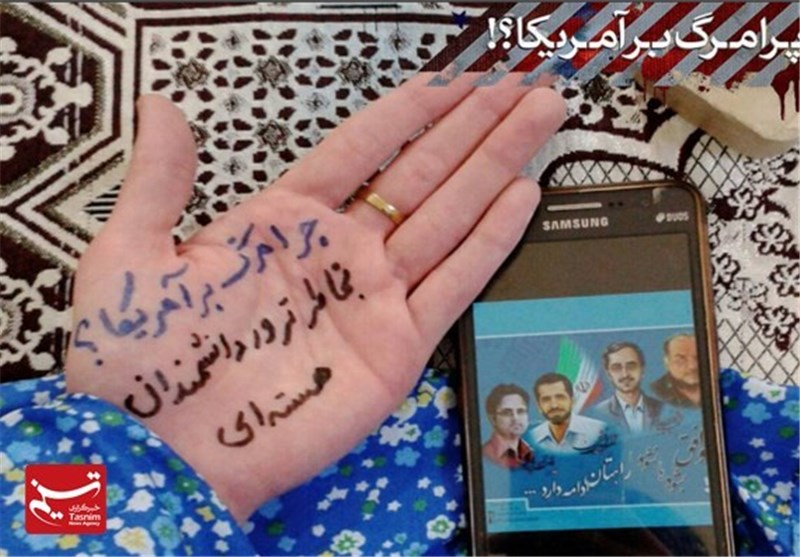 چرا مرگ بر آمریکا؟!
چرا مرگ بر آمریکا؟
بخاطر ترور دانشمندان
هسته ای
SAMSUNG
DUOS
راهتان ادامه دارد ...
تسنیم
خبرگزاری
Tasnim
News Agency